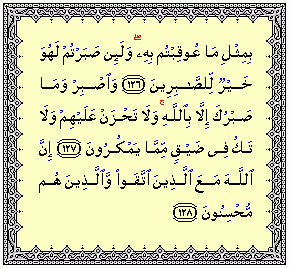 بِمِثْلِ مَا عُوقِبْتُم بِهِۦۖ وَلَئِن صَبَرْتُمْ لَهُوَ
خَيْرٌ لِّلصَّـٰبِرِينَ ﴿١٢٦﴾ وَٱصْبِرْ وَمَا
صَبْرُكَ إِلَّا بِٱللَّهِۚ وَلَا تَحْزَنْ عَلَيْهِمْ وَلَا
تَكُ فِى ضَيْقٍ مِّمَّا يَمْكُرُونَ ﴿١٢٧﴾ إِنَّ
ٱللَّهَ مَعَ ٱلَّذِينَ ٱتَّقَوا۟ وَّٱلَّذِينَ هُم
مُّحْسِنُونَ ﴿١٢٨﴾